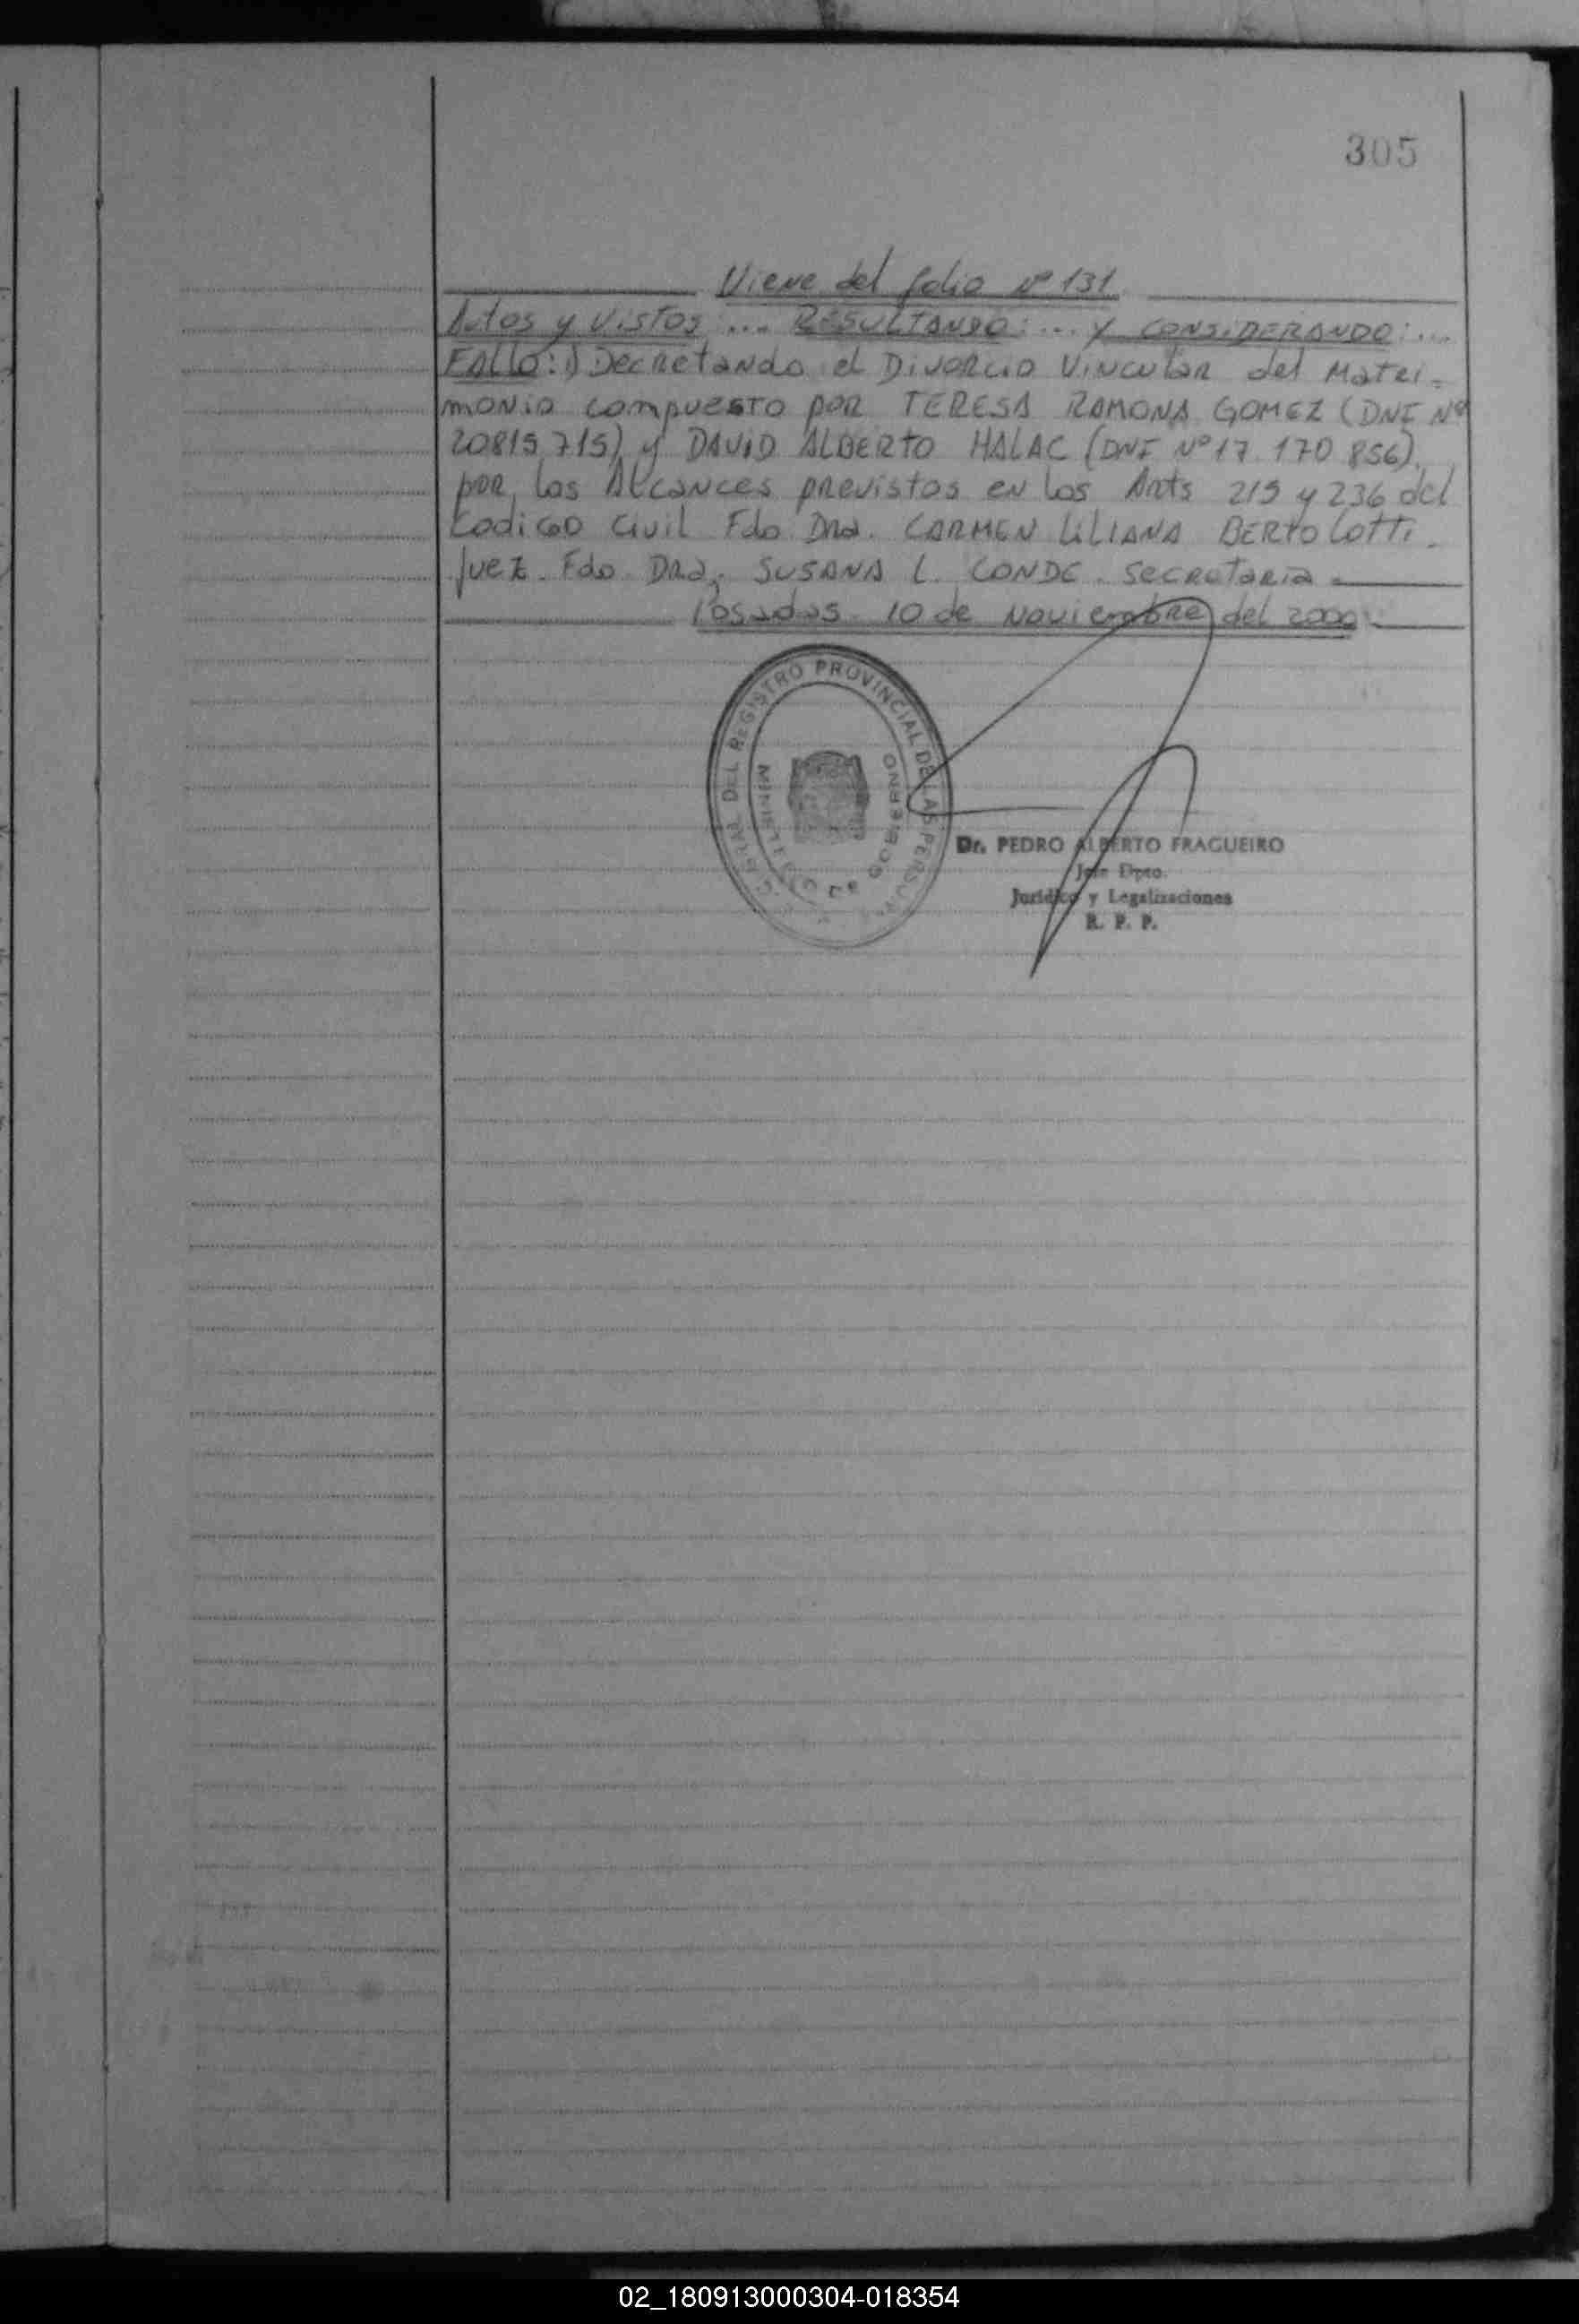 305
Viene del folio Nº 131
Autos y Vistos:... RESULTANDO:... Y CONSIDERANDO:...
FALLO: 1) Decretando el Divorcio Vincular del Matri=
monio compuesto por TERESA RAMONA GOMEZ (DNI Nº
20819.715) y DAVID ALBERTO HALAC (DNI Nº 17.170.856).
por los Alcances previstos en los Arts 215 y 236 del
Codigo Civil Fdo Dra. CARMEN LILIANA BERTOLOTTI.
Juez. Fdo. Dra. SUSANA L. CONDE. Secretaria.
Posadas 10 de Noviembre del 2000
DEL REGISTRO PROVINCIAL DE LAS PERSONAS
MINISTERIO DE GOBIERNO
Dr. PEDRO ALBERTO FRAGUEIRO
Jefe Dpto.
Jurídico y Legalizaciones
R. P. P.
02_180913000304-018354